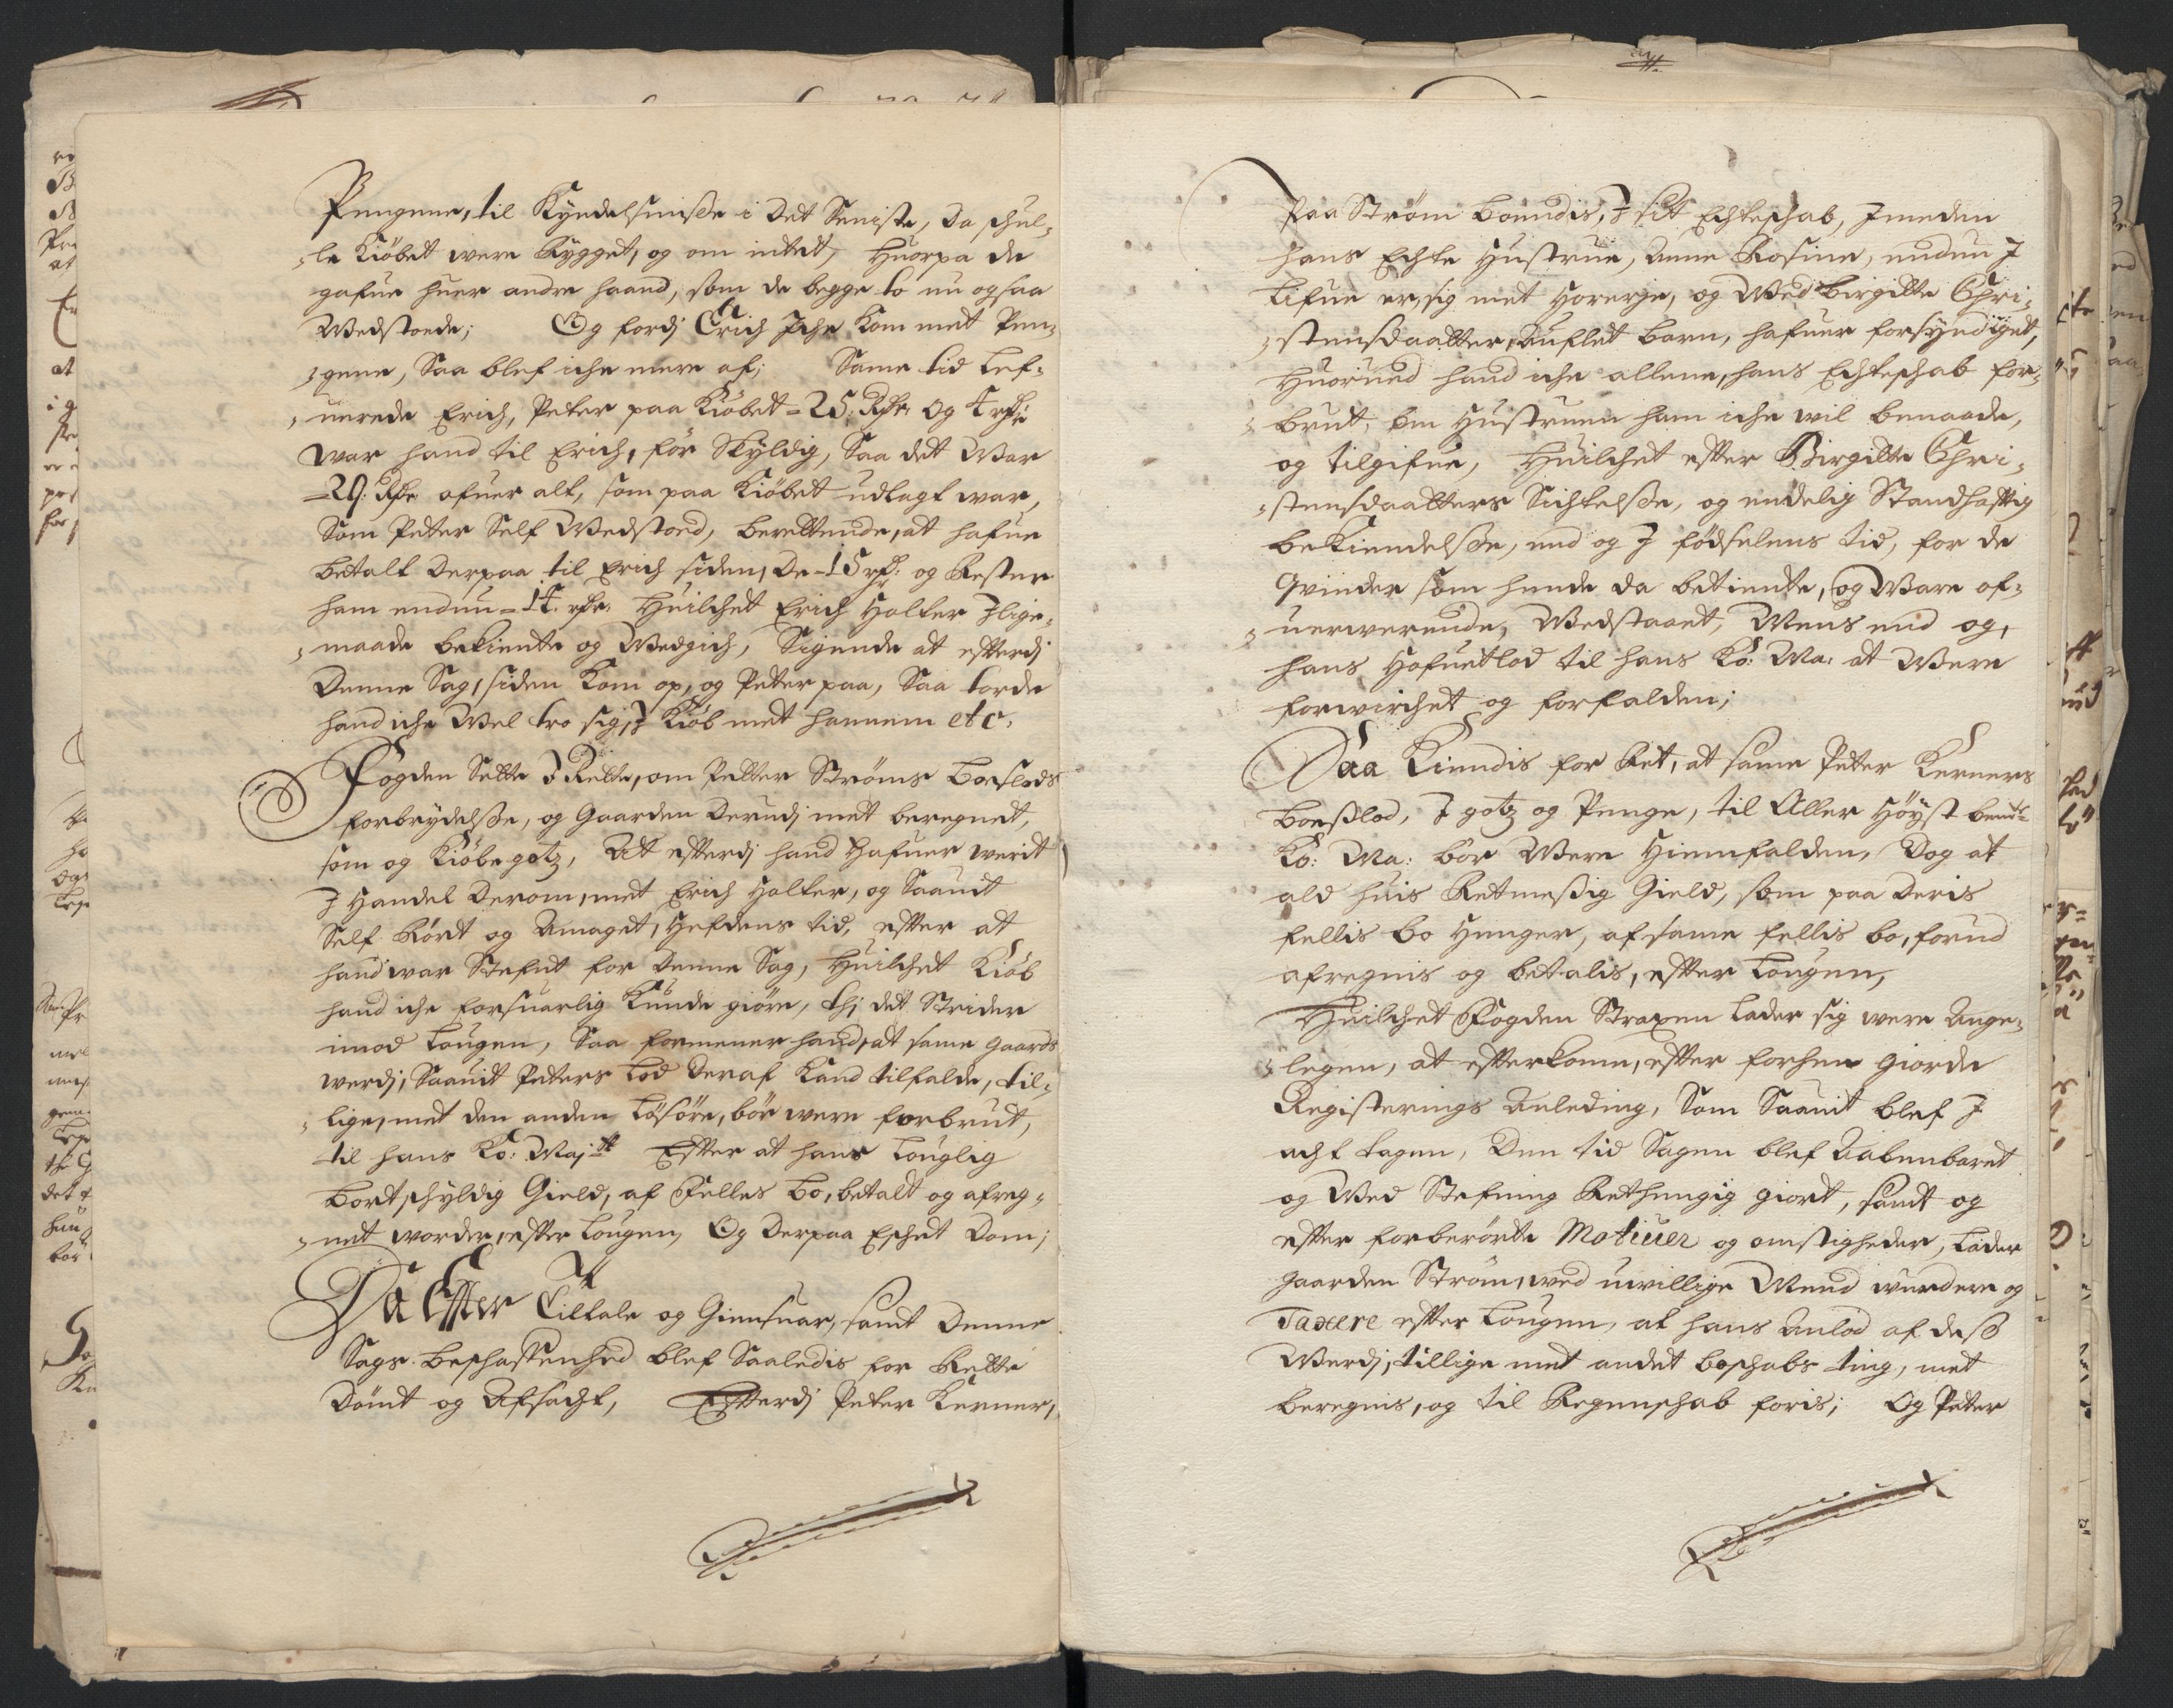 Pengene, til Kyndelsmisße i det Seniste, da schul-
le Kiöbet were Rygget, og om intet, Huorpa de
gafue huer andre haand, som de begge to nu ogsaa
Wedstoede; Og fordj Erich Iche Kom met Pen-
gene, Saa blef iche mere af; Same tid lef-
uerede Erich, Peter paa Kiöbet = 25: Rdr: og 4 rdr:
war hand til Erich, för Skyldig, Saa det War
= 29: Rdr ofuer alt, som paa Kiöbet udlagt war,
Som Peter Self Wedstoed, berettende, at hafue
betalt derpaa til Erich siden, De = 15 rd: og Rester
ham endnu = 14. rdr: Huilchet Erich Holter Ilige-
maade bekiente og Wedgich, Sigende at efterdj
Denne Sag, siden Kom op, og Peter paa, Saa torde
hand iche Wel tro sig, I Kiöb met hannem etc.
Fogden Sette I Rette, om Petter Ströms boeslods
forbrydelsße, og Gaarden derudj met beregnet,
som og Kiöbe gotz, At efterdj hand hafuer werit
I Handel derom, met Erich Holter, og Saauit
Self Rört og Umaget, Hefdens tid, efter at
hand war Stefnt for denne Sag, Huilchet Kiöb
hand iche forsuarlig Kunde giöre, thj det Strider
imod Lougen, Saa formener hand, at same gaards
werdj, Saauit Peters Lod deraf Kand tilfalde, til-
lige, met den anden Lösöre, bör were forbrut,
til hans Ko: Maj.tt Efter at hans Louglig
bort schyldig Gield, af Felles bo, betalt og afreg-
net worder, efter Lougen, Og derpaa Eschet Dom;
Da Efter Tiltale og Giensuar, samt denne
Sags beschaffenhed blef Saaledis for Rette
Dömt og Afsagt, Efterdj Peter Kerner,
Paa Ström befindis, I sit Echteschab, Imeden
hans Echte Hustrue, Anne Rosine, endnu I
Lifue er, sig met Horerje, og Wed Birgitte Chri-
stensdaatter, Auflet barn, hafuer forsyndiget,
Huorued hand iche allene, hans Echteschab for-
brut, om Hustruen ham iche wil benaade,
og tilgifue, Huilchet efter Birgitte Chri-
stensdaatters Sichtelsße, og endelig Standhaftig
bekiendelsße, end og I födselens tid, for de
Qvinder som hende da betiente, og Ware of-
uerwerende, Wedstaaet, Mens end og,
hans Hofuetlod til hans Ko: Ma: at Were
forwirchet og forfalden;
Saa Kiendis for Ret, at same Peter Kerners
boeßlod, I gotz og Penge, til Aller Höyst bemte
Ko: Ma: bör Were Hiemfalden, Dog at
ald huis Retmeßig Gield, som paa deris
fellis bo Henger, af same fellis bo, forud
afregnis og betalis, efter Lougen,
Huilchet Fogden Straxen lader sig were Ange-
legen, at efterkome, efter forhen giorde
Registerings Anleding, Som Saauit blef I
acht tagen, Den tid Sagen blef Aabenbaret
og Wed Stefning Rethengig giort, samt og
efter forberörte Motiuer og omstigheder, Lader
gaarden Ström, wed uwillige Mend wurdere og
Taxere efter Lougen, at hans Anlod af deß
Werdj, tillige met andet boschabs ting, met
beregnis, og til Regenschab föris; Og Peter